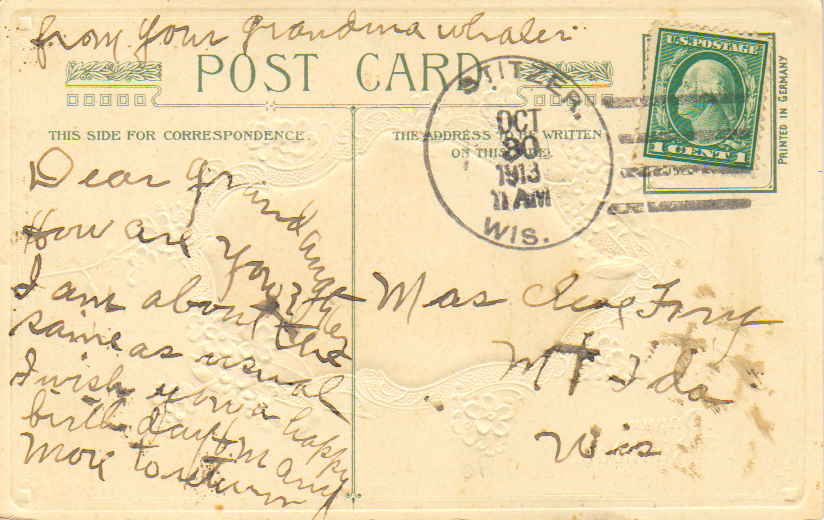 from your grandma whaler
POST CARD.
THIS SIDE FOR CORRESPONDENCE.
THE ADDRESS TO BE WRITTEN
ON THIS SIDE.
STITZER.
OCT
30
1913
11 AM
WIS.
U.S. POSTAGE
1 CENT 1
PRINTED IN GERMANY
Dear grandaughter
How are you
I am about the
same as usual
I wish you a happy
birth day & many
more to return
Mt Ida
Wis